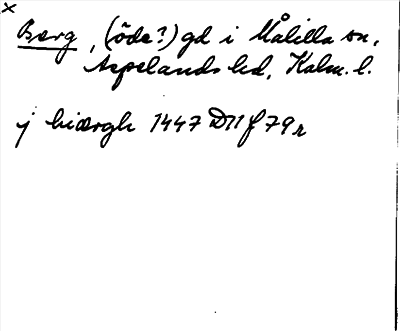 ×
Berg, (öde?) gd i Målilla sn,
Aspelands hd, Kalm. l.
j biærgh 1447 D11 f 79r